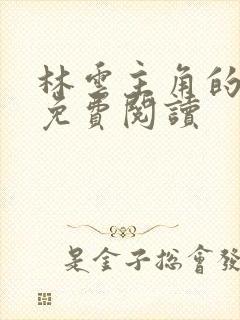 林雲主角的
免費閱讀
是金子總會發